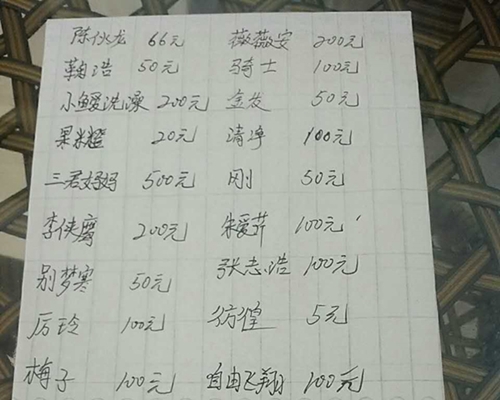 陈伙龙 66元 薇薇安 200元
鞠浩 50元 骑士 100元
小鳗洗澡 200元 金发 50元
果米橙 20元 清净 100元
三君妈妈 500元 刚 50元
李侠 200元 朱爱芹 100元
别梦寒 50元 张志浩 100元
厉玲 100元 彷徨 5元
梅子 100元 自由飞翔 100元